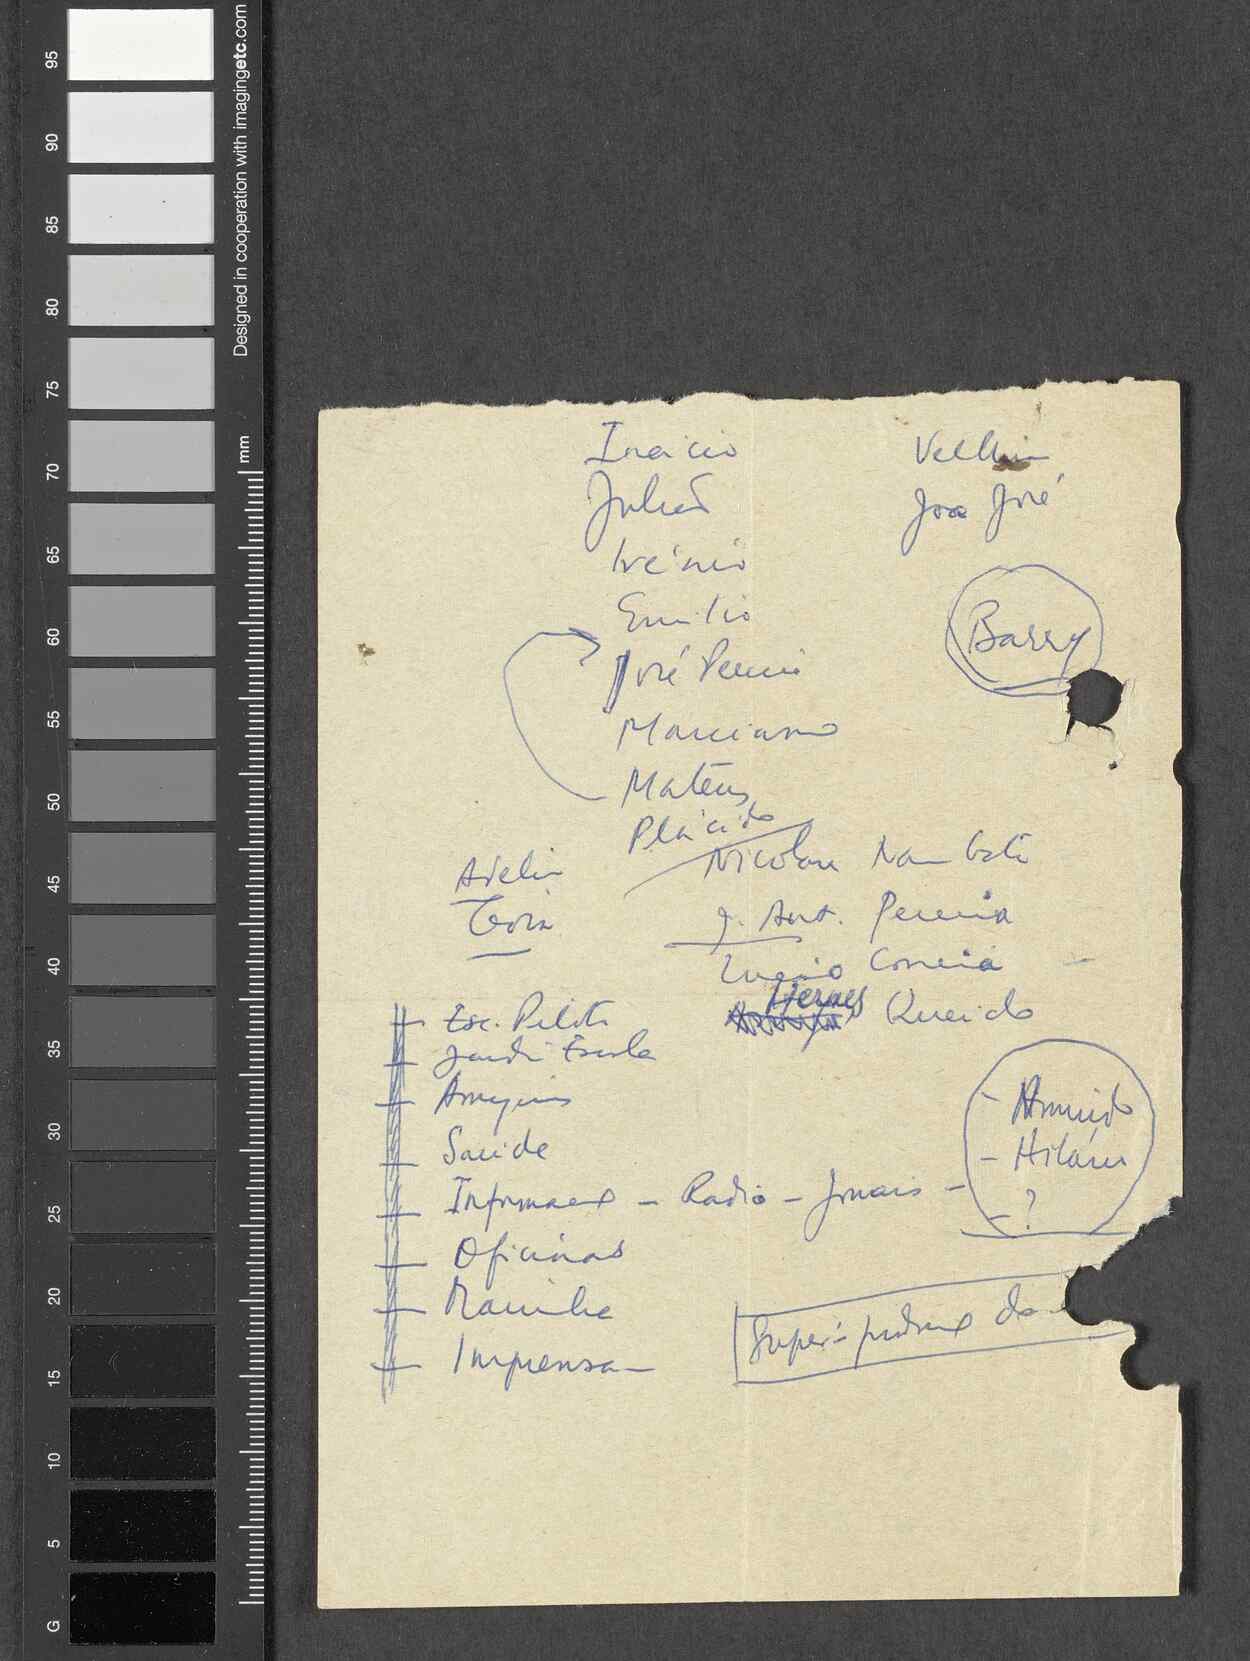 95
90
85
80
75
70
65
60
55
50
45
40
35
30
25
20
15
10
5
G
Designed in cooperation with imagingetc.com
mm
Inácio
Julião
Irénio
Emílio
José Pereira
Marciano
Mateus
Plácido
João José
Barry
Nicolau
J. Ant. Pereira
Correia
Hermes Querido
Adelin
Esc. Piloto
Jardim Escola
Saúde
Informação - Radio - Jornais -
- Armindo
- Hilário
- ?
Oficinas
Marinha
Imprensa